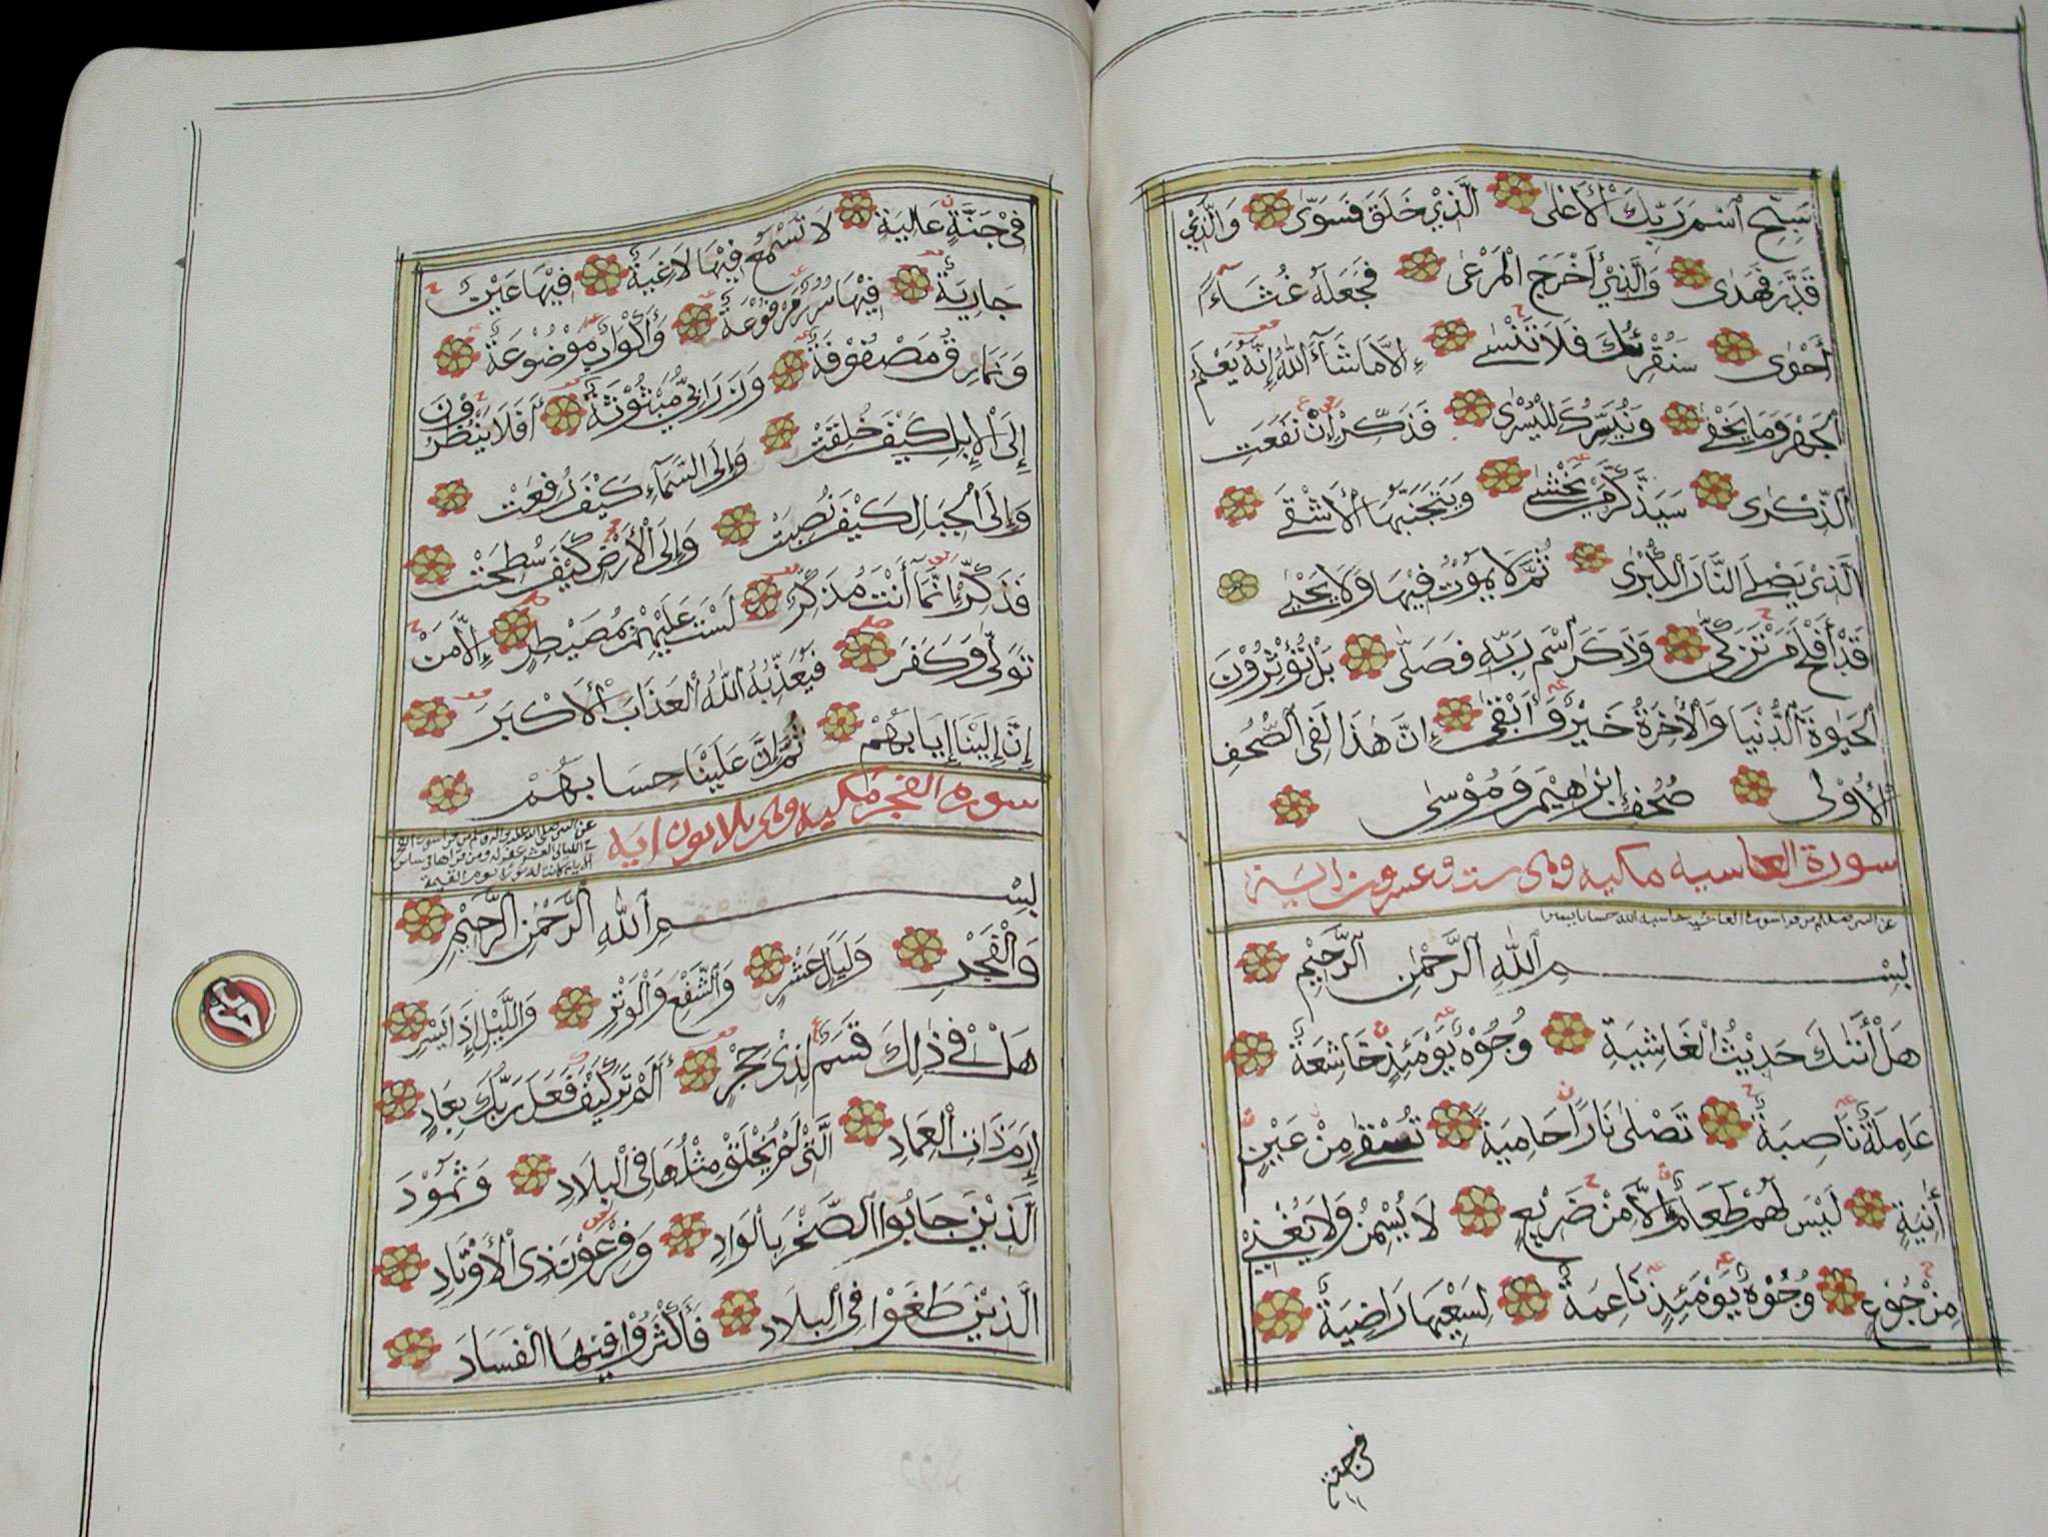 سَبِّحِ اسْمَ رَبِّكَ الْأَعْلَى الَّذِي خَلَقَ فَسَوَّى وَالَّذِي
قَدَّرَ فَهَدَى وَالَّذِي أَخْرَجَ الْمَرْعَى فَجَعَلَهُ غُثَاءً
أَحْوَى سَنُقْرِئُكَ فَلَا تَنْسَى إِلَّا مَا شَاءَ اللَّهُ إِنَّهُ يَعْلَمُ
الْجَهْرَ وَمَا يَخْفَى وَنُيَسِّرُكَ لِلْيُسْرَى فَذَكِّرْ إِنْ نَفَعَتِ
الذِّكْرَى سَيَذَّكَّرُ مَنْ يَخْشَى وَيَتَجَنَّبُهَا الْأَشْقَى
الَّذِي يَصْلَى النَّارَ الْكُبْرَى ثُمَّ لَا يَمُوتُ فِيهَا وَلَا يَحْيَى
قَدْ أَفْلَحَ مَنْ تَزَكَّى وَذَكَرَ اسْمَ رَبِّهِ فَصَلَّى بَلْ تُؤْثِرُونَ
الْحَيٰوةَ الدُّنْيَا وَالْآخِرَةُ خَيْرٌ وَأَبْقَى إِنَّ هَذَا لَفِي الصُّحُفِ
الْأُوْلَى صُحُفِ إِبْرٰهِيمَ وَمُوسَى
سورة الغاسيه مكيه وهى ست وعسرون اية
بِسْمِ اللَّهِ الرَّحْمٰنِ الرَّحِيمِ
هَلْ أَتٰكَ حَدِيثُ الْغَاشِيَةِ وُجُوهٌ يَوْمَئِذٍ خَاشِعَةٌ
عَامِلَةٌ نَاصِبَةٌ تَصْلَى نَارًا حَامِيَةً تُسْقَى مِنْ عَيْنٍ
آنِيَةٍ لَيْسَ لَهُمْ طَعَامٌ إِلَّا مِنْ ضَرِيعٍ لَا يُسْمِنُ وَلَا يُغْنِي
مِنْ جُوعٍ وُجُوهٌ يَوْمَئِذٍ نَاعِمَةٌ لِسَعْيِهَا رَاضِيَةٌ
فى جنة
فِي جَنَّةٍ عَالِيَةٍ لَا تَسْمَعُ فِيهَا لَاغِيَةً فِيهَا عَيْنٌ
جَارِيَةٌ فِيهَا سُرُرٌ مَرْفُوعَةٌ وَأَكْوَابٌ مَوْضُوعَةٌ
وَنَمَارِقُ مَصْفُوفَةٌ وَزَرَابِيُّ مَبْثُوثَةٌ أَفَلَا يَنْظُرُونَ
إِلَى الْإِبِلِ كَيْفَ خُلِقَتْ وَإِلَى السَّمَاءِ كَيْفَ رُفِعَتْ
وَإِلَى الْجِبَالِ كَيْفَ نُصِبَتْ وَإِلَى الْأَرْضِ كَيْفَ سُطِحَتْ
فَذَكِّرْ إِنَّمَا أَنْتَ مُذَكِّرٌ لَسْتَ عَلَيْهِمْ بِمُصَيْطِرٍ إِلَّا مَنْ
تَوَلَّى وَكَفَرَ فَيُعَذِّبُهُ اللَّهُ الْعَذَابَ الْأَكْبَرَ
إِنَّ إِلَيْنَا إِيَابَهُمْ ثُمَّ إِنَّ عَلَيْنَا حِسَابَهُمْ
سوره الفجر مكيه وهى ثلاثون ايه
بِسْمِ اللَّهِ الرَّحْمٰنِ الرَّحِيمِ
وَالْفَجْرِ وَلَيَالٍ عَشْرٍ وَالشَّفْعِ وَالْوَتْرِ وَاللَّيْلِ إِذَا يَسْرِ
هَلْ فِي ذٰلِكَ قَسَمٌ لِذِي حِجْرٍ أَلَمْ تَرَ كَيْفَ فَعَلَ رَبُّكَ بِعَادٍ
إِرَمَ ذَاتِ الْعِمَادِ الَّتِي لَمْ يُخْلَقْ مِثْلُهَا فِي الْبِلَادِ وَثَمُودَ
الَّذِينَ جَابُوا الصَّخْرَ بِالْوَادِ وَفِرْعَوْنَ ذِي الْأَوْتَادِ
الَّذِينَ طَغَوْا فِي الْبِلَادِ فَأَكْثَرُوا فِيهَا الْفَسَادَ